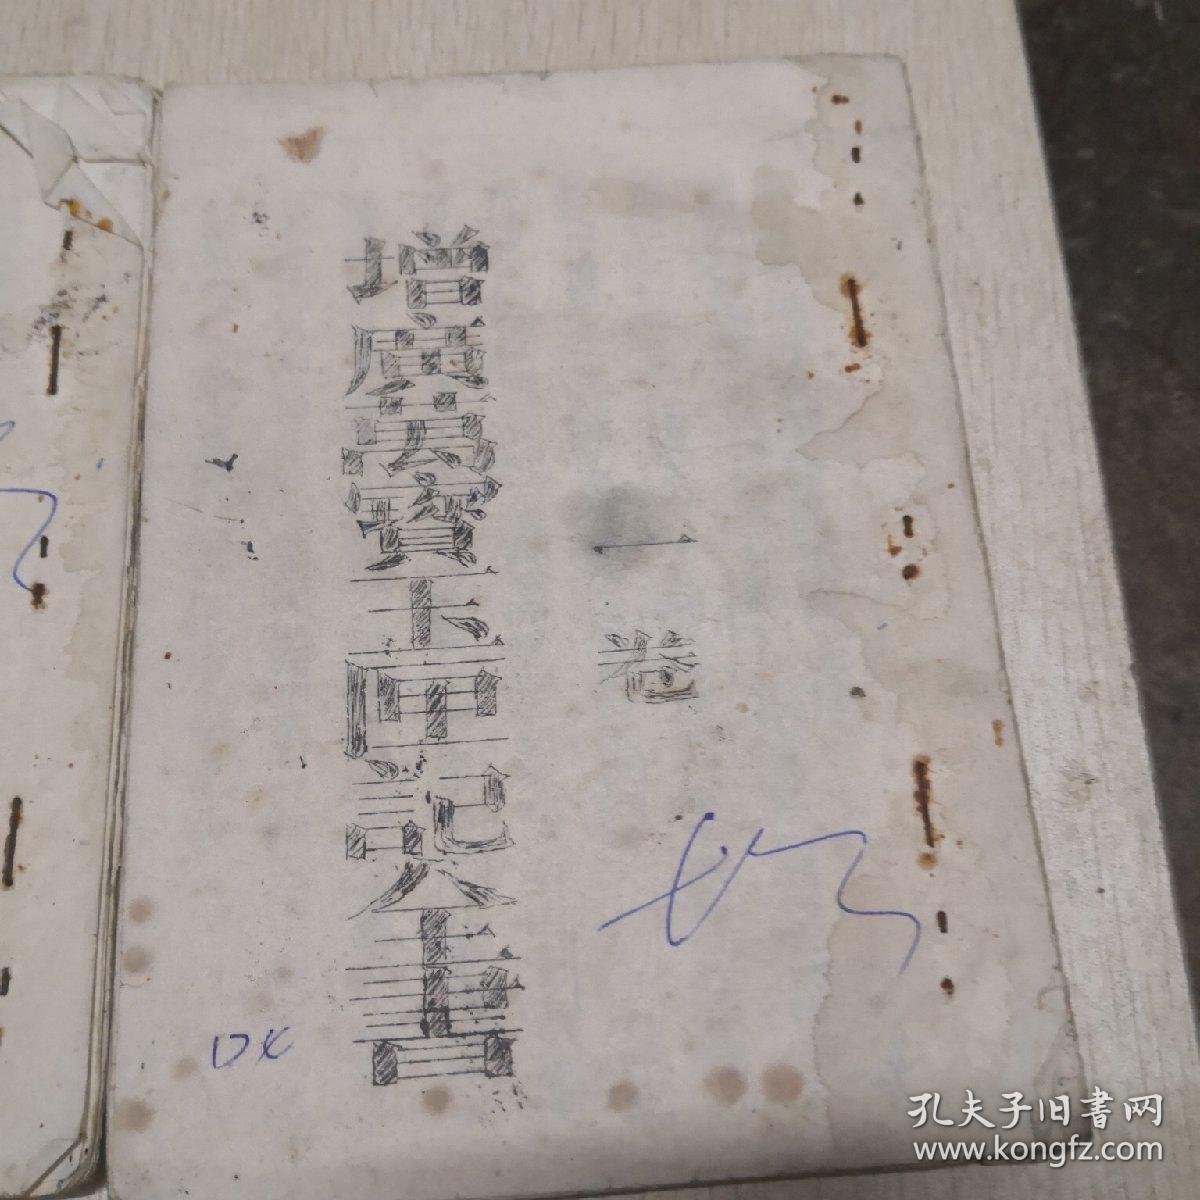 一卷
增廣寶玉匣記全書
孔夫子旧書网
www.kongfz.com